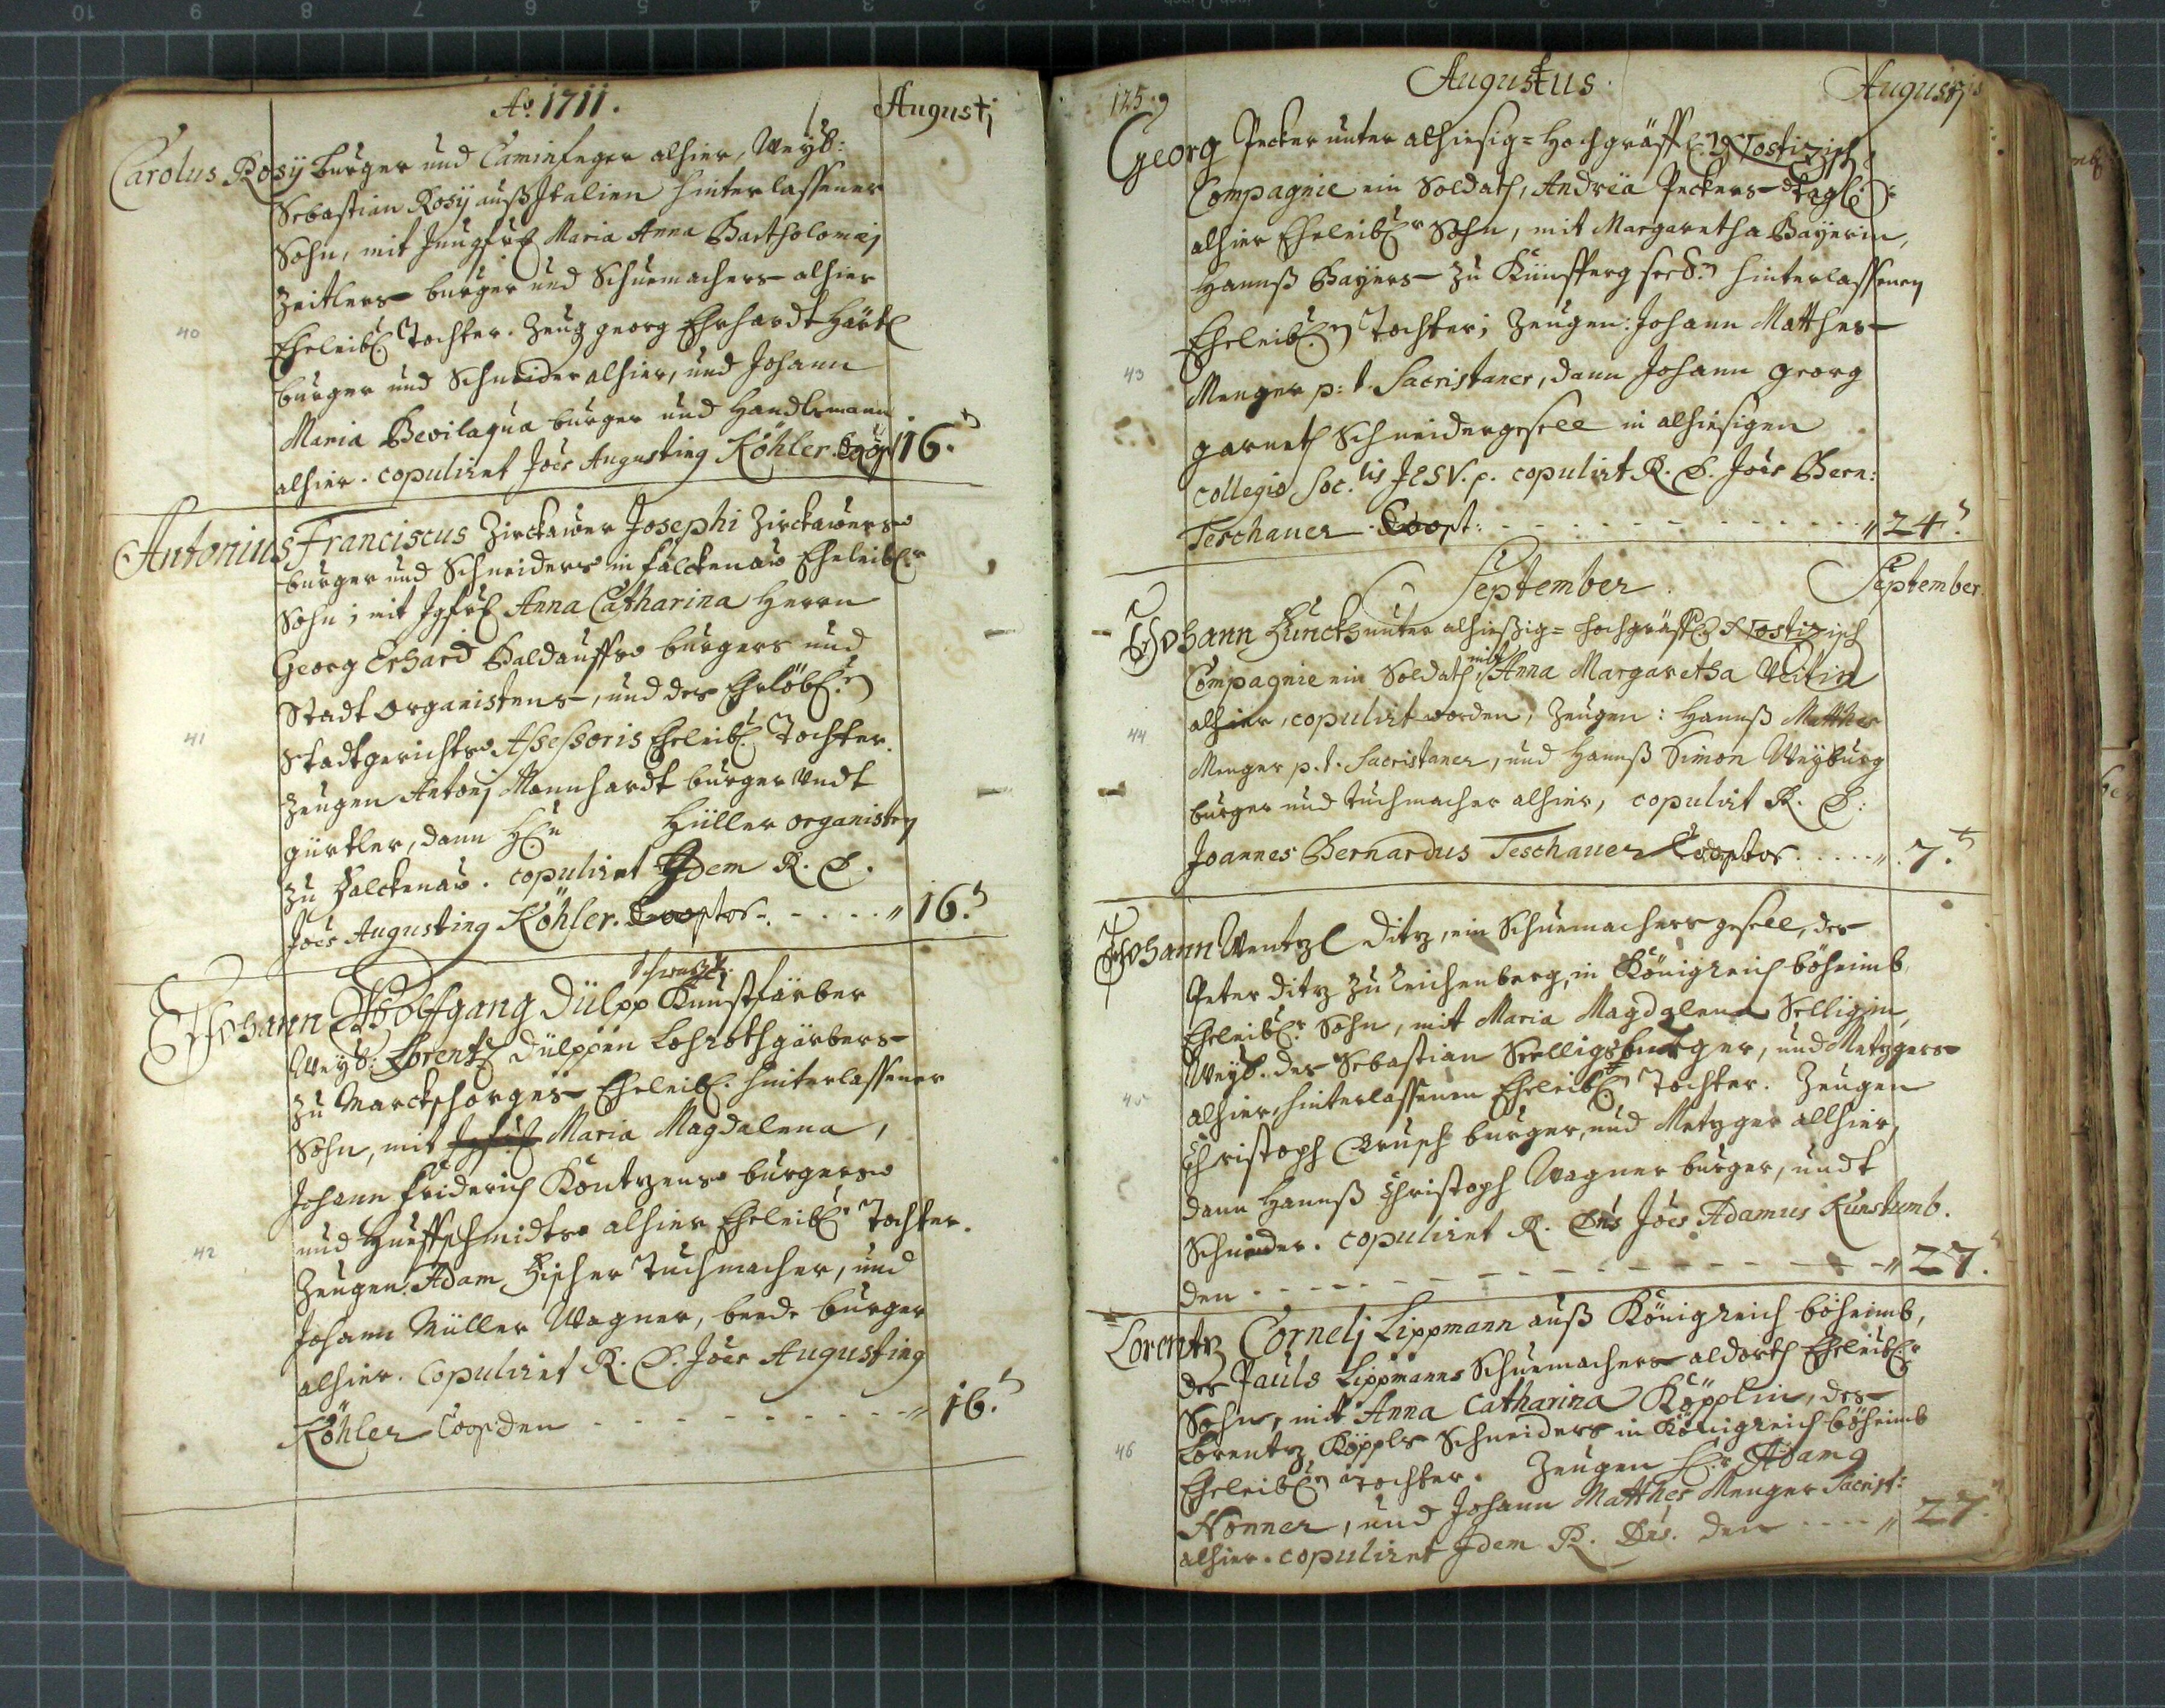 Aō. 1711. Augusti
Carolus Rosÿ burger und Caminfeger alhier, Weÿl:
Sebastian Rosÿ auß Italien hinterlassener
Sohn, mit Jungfrl Maria Anna Bartholomæi
Zeitlers burger und Schuemachers alhier
40
Eheleibl. Tochter. Zeug georg Ehrhardt Härtl
burger und Schneider alhier, und Johann
Maria Bevilaqua burger und Handlsmann
alhier. copuliret Joes Augusting Köhler. Coop. 16.
Antonius Franciscus Zirckawer Josephi Zirckawers
burger und Schneiders in falckenaw Eheleibl.r
Sohn; mit Jgfrl Anna Catharina Herrn
Georg Erhard Baldauffs burgers und
Stadt organistens, und des Ehrlöbl.n
41
Stadtgerichts Assessoris Eheleibl. Tochter.
Zeugen Antonj Mannhardt burger Undt
gürtler, dann H.n Hüller organisten
zu Falckenaw. copuliret Idem R. D.
Joes Augusting Köhler. Cooptor. 16.
Schwartz
Johann Wolfgang Dülpp Kunstfärber
Weÿl: Lorentz Dülppen Lohrothgärbers
zu Marckhorges Eheleibl. hinterlassener
Sohn, mit Jgfrl Maria Magdalena,
Johann friderich Köntzens burgers
und Hueffschmidts alhier Eheleibl. Tochter.
42
Zeugen: Adam Fischer Tuchmacher, und
Johann Müller Wagner, beede burger
alhier. Copuliret R. D. Joes Augusting
Köhler Coop den 16.
125. Augustus. Augusti
Georg Pecker unter alhiesig= Hochgräffl. Nostizisch
Compagnie ein Soldath, Andrëa Peckers tagl:
alhier Eheleibl.r Sohn, mit Margaretha Baÿerin,
Hannß Baÿers zu Künsperg seel.n hinterlassenen
Eheleibl.n Tochter; Zeugen: Johann Matthes
43
Menger p: t. Sacristaner, dann Johann georg
garneth Schneidergesell in alhiesigen
collegio Soc.tis JESV. p. copulirt R. D. Joës Bern:
Teschauer Coopt: 24.
September. September.
Johann Funckh unter alhießig= hochgräffl. Nostizisch
Compagnie ein Soldath, mit Anna Margaretha Veitin
44
alhier, copulirt worden, Zeugen: Hannß Matthes
Menger p. t. Sacristaner, und Hannß Simon Weÿburg
burger und tuchmacher alhier, copulirt R. D:
Joannes Bernardus Teschauer Cooptor. 7.
Johann Wentzl Ditz, ein Schuemachersgesell, des
Peter Ditz zu Reichenberg, in Königreich böheimb
Eheleibl.r Sohn, mit Maria Magdalena Selligin,
Weÿl. des Sebastian Seelligs burger, und Metzgers
45
alhier, hinterlassenen Eheleibl. Tochter. Zeugen
Christoph Brusch burger, und Metzger allhier,
dann Hannß Christoph Wagner burger, undt
Schneider. copuliret R. Dns Joes Adamus Kunstumb.
den 27.
Lorentz Cornelj Lippmann auß Königreich böheimb,
des Pauls Lippmanns Schuemachers aldorth Eheleibl.r
Sohn, mit Anna Catharina Köpplin, des
46
Lorentz Köppls Schneiders in Königreich böheimb
Eheleibl.n Tochter. Zeugen H.r Adam
Nonner, und Johann Matthes Menger Sacrist:
alhier. copuliret Idem R. Dns. den 27.